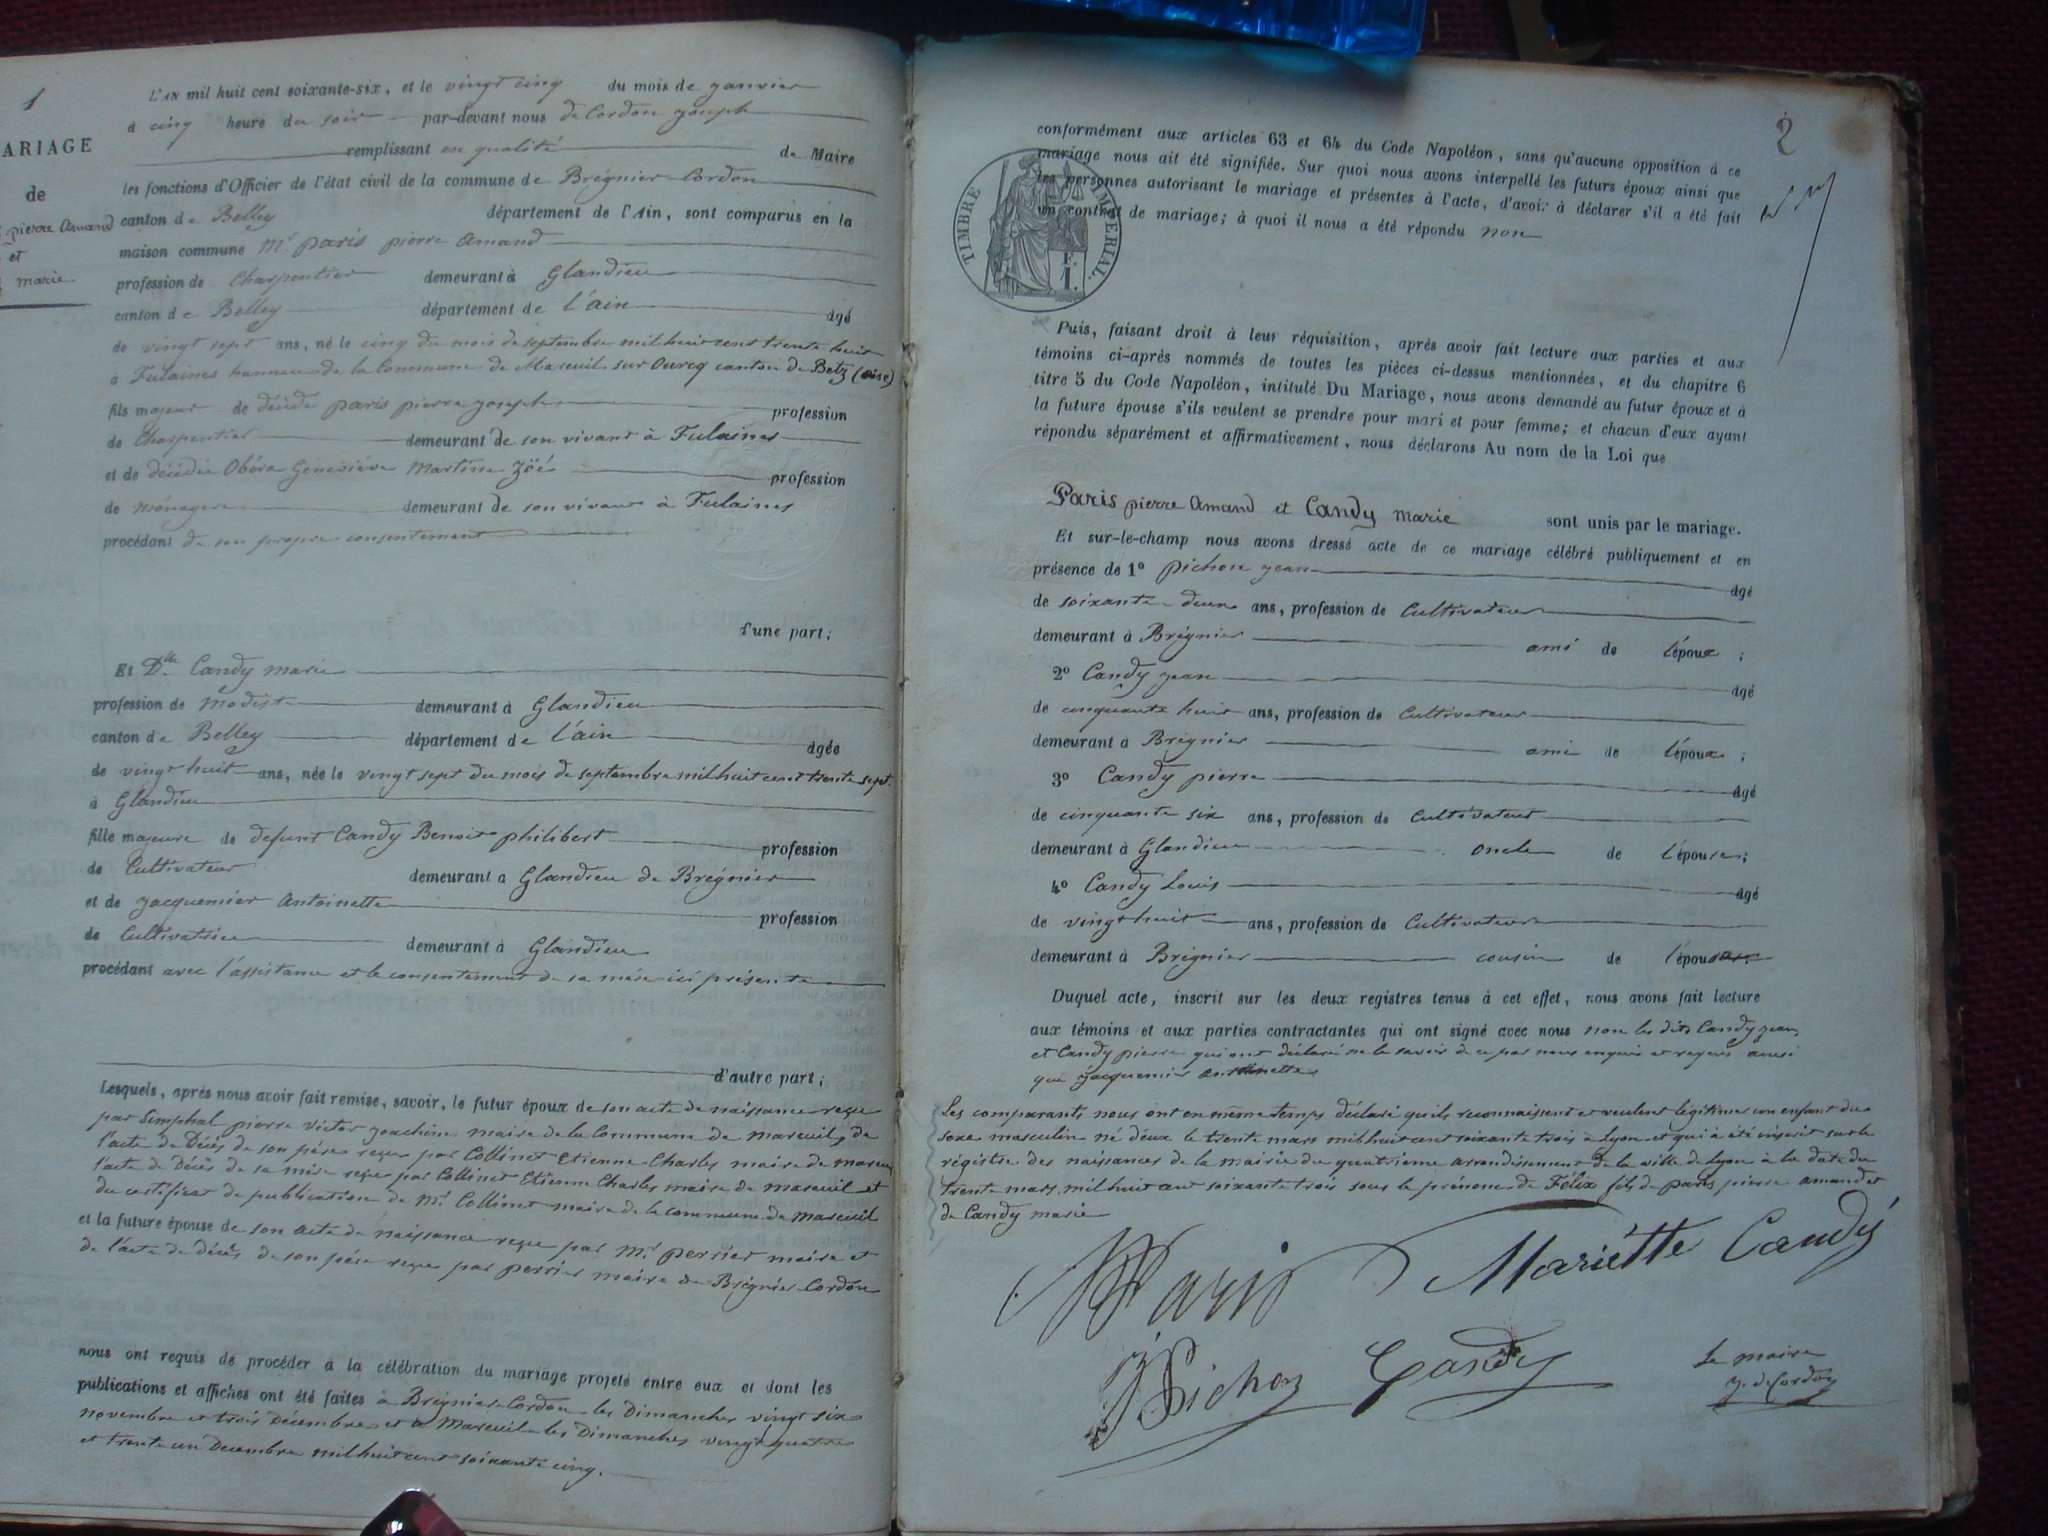 1
ARIAGE
de
pierre Amand
et
marie
L'AN mil huit cent soixante-six, et le vingt cinq du mois de janvier
à cinq heure du soir par-devant nous de Cordon joseph
remplissant en qualité de Maire
les fonctions d'Officier de l'état civil de la commune de Brégnier-Cordon
canton de Belley département de l'Ain, sont comparus en la
maison commune Mr. paris pierre Amand
profession de Charpentier demeurant à Glandieu
canton de Belley département de l'ain âgé
de vingt sept ans, né le cinq du mois de septembre mil huit cent trente huit
à Fulaines hameau de la Commune de Mareuil sur Ourcq canton de Betz (Oise)
fils majeur de décédé paris pierre joseph profession
de Charpentier demeurant de son vivant à Fulaines
et de décédée Obére Géneviéve Martine Zoé profession
de ménagere demeurant de son vivant à Fulaines
procédant de son propre consentement
d'une part;
Et Dlle Candy marie
profession de modiste demeurant à Glandieu
canton de Belley département de l'ain âgée
de vingt huit ans, née le vingt sept du mois de septembre mil huit cent trente sept
à Glandieu
fille majeure de defunt Candy Benoit philibert profession
de Cultivateur demeurant à Glandieu de Brégnier
et de jacquemier Antoinette profession
de Cultivatrice demeurant à Glandieu
procédant avec l'assistance et le consentement de sa mère ici présente
d'autre part;
Lesquels, après nous avoir fait remise, savoir, le futur époux de son acte de naissance reçu
par pierre victor joachim maire de la Commune de Mareuil, de
l'acte de Décès de son père reçu par Collinet Etienne Charles maire de mareuil
l'acte de Décès de sa mère reçu par Collinet Etienne Charles maire de Mareuil et
du certificat de publication de Mr Collinet maire de la commune de Mareuil
et la future épouse de son acte de naissance reçu par Mr perrier maire et
de l'acte de décès de son père reçu par perrier maire de Brégnier-Cordon
nous ont requis de procéder à la célébration du mariage projeté entre eux et dont les
publications et affiches ont été faites à Brégnier-Cordon les Dimanches vingt six
novembre et trois Décembre et à Mareuil les Dimanches vingt quatre
et trente un Decembre mil huit cent soixante cinq.
2
conformément aux articles 63 et 64 du Code Napoléon, sans qu'aucune opposition à ce
mariage nous ait été signifiée. Sur quoi nous avons interpellé les futurs époux ainsi que
les personnes autorisant le mariage et présentes à l'acte, d'avoir à déclarer s'il a été fait
un contrat de mariage; à quoi il nous a été répondu non
TIMBRE IMPÉRIAL.
F.
1.
Puis, faisant droit à leur réquisition, après avoir fait lecture aux parties et aux
témoins ci-après nommés de toutes les pièces ci-dessus mentionnées, et du chapitre 6
titre 5 du Code Napoléon, intitulé Du Mariage, nous avons demandé au futur époux et à
la future épouse s'ils veulent se prendre pour mari et pour femme; et chacun d'eux ayant
répondu séparément et affirmativement, nous déclarons Au nom de la Loi que
Paris pierre Amand et Candy marie sont unis par le mariage.
Et sur-le-champ nous avons dressé acte de ce mariage célébré publiquement et en
présence de 1º pichon jean âgé
de soixante-deux ans, profession de Cultivateur
demeurant à Brégnier ami de l'époux ;
2º Candy jean âgé
de cinquante huit ans, profession de Cultivateur
demeurant à Brégnier ami de l'époux ;
3º Candy pierre âgé
de cinquante six ans, profession de Cultivateur
demeurant à Glandieu oncle de l'épouse;
4º Candy Louis âgé
de vingt huit ans, profession de Cultivateur
demeurant à Brégnier cousin de l'épouse.
Duquel acte, inscrit sur les deux registres tenus à cet effet, nous avons fait lecture
aux témoins et aux parties contractantes qui ont signé avec nous non les dits Candy jean
et Candy pierre qui ont déclaré ne le savoir de ce par nous enquis et requis aussi
que Jacquemier Antoinette
Les comparants nous ont en même temps déclaré qu'ils reconnaissent et veulent légitimer un enfant du
sexe masculin né deux le trente mars mil huit cent soixante trois à Lyon et qui à été inscrit sur le
régistre des naissances de la mairie du quatrieme arrondissement de la ville de Lyon à la date du
trente mars mil huit cent soixante trois sous le prénom de Félix fils de paris pierre amand et
de Candy marie
Paris Mariètte Candy
Pichon Candy
Le maire
J. de Cordon